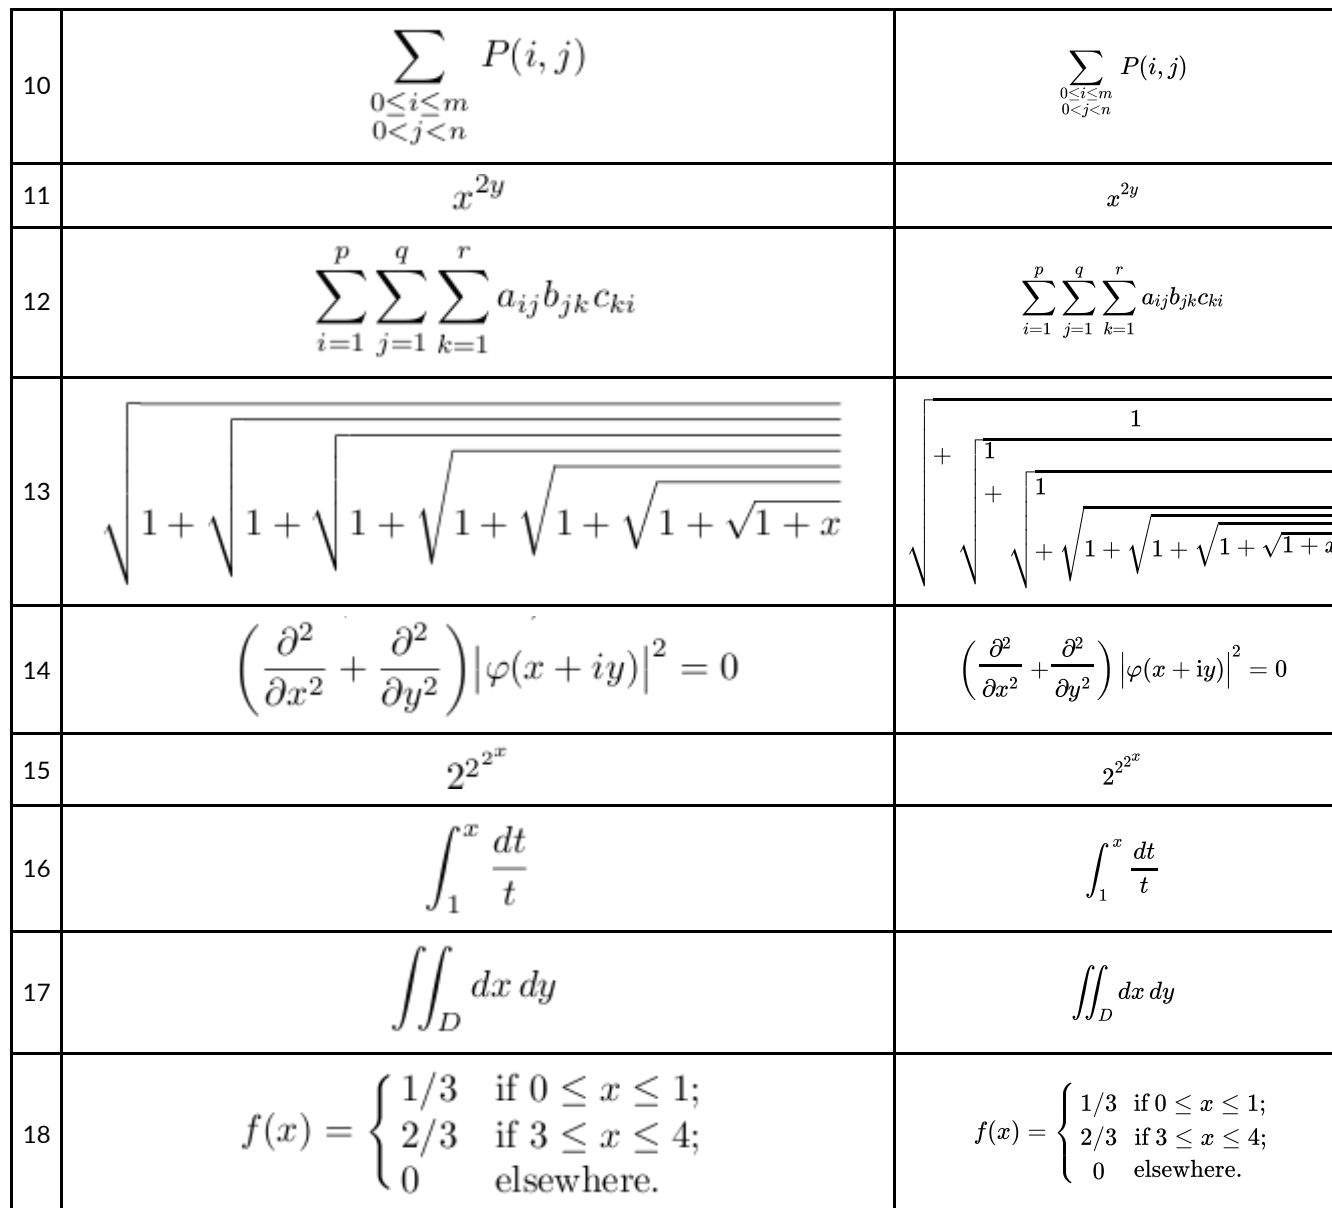 10 \sum_{\substack{0\le i\le m \\ 0<j<n}} P(i,j) \sum_{\substack{0\le i\le m \\ 0<j<n}} P(i,j)
11 x^{2y} x^{2y}
12 \sum_{i=1}^{p} \sum_{j=1}^{q} \sum_{k=1}^{r} a_{ij}b_{jk}c_{ki} \sum_{i=1}^{p} \sum_{j=1}^{q} \sum_{k=1}^{r} a_{ij}b_{jk}c_{ki}
13 \sqrt{1+\sqrt{1+\sqrt{1+\sqrt{1+\sqrt{1+\sqrt{1+\sqrt{1+x}}}}}}} \sqrt{1+\sqrt{1+\sqrt{1+\sqrt{1+\sqrt{1+\sqrt{1+\sqrt{1+x}}}}}}}
14 \left(\frac{\partial^2}{\partial x^2}+\frac{\partial^2}{\partial y^2}\right)|\varphi(x+iy)|^2=0 \left(\frac{\partial^2}{\partial x^2}+\frac{\partial^2}{\partial y^2}\right)|\varphi(x+\mathrm{i}y)|^2=0
15 2^{2^{2^{x}}} 2^{2^{2^{x}}}
16 \int_1^x \frac{dt}{t} \int_1^x \frac{dt}{t}
17 \iint_D dx\,dy \iint_D dx\,dy
18 f(x) = { 1/3 if 0 ≤ x ≤ 1; f(x) = { 1/3 if 0 ≤ x ≤ 1;
2/3 if 3 ≤ x ≤ 4; 2/3 if 3 ≤ x ≤ 4;
0 elsewhere. 0 elsewhere.